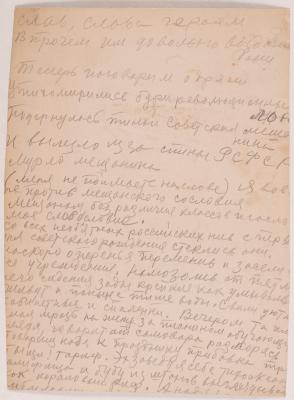 Слав, слава героям
Впрочем им довольно воздали
дани
Теперь поговорим о дряни
Утихомирились бури революционных
лон
Подернулась тиной советская меша
нина
И вылезло из за спины РСФСР
мурло мещанина
(меня не поймаете на слове) я вов
не против мещанского сословия
Мещанам без различия классов и сосло
мое славословие.
Со всех необъятных российских нив с перв
дня советского рождения стеклись они,
наскоро оперения переменив и засели
учреждения. Намозолив от пяти
него сидения зады крепкие как умывальн
живут и поныне тише воды. Свили уютн
кабинетные и спаленки. Вечером та или
ная мразь на жену за пианином обучающ
глядя, говорит от самовара разморясь
Товарищ Надя к празднику прибавка 24
тыщи! тариф. Эх заведу я себе тихоокеан
галифища чтоб из штанов выглядывать
как коралловый риф.